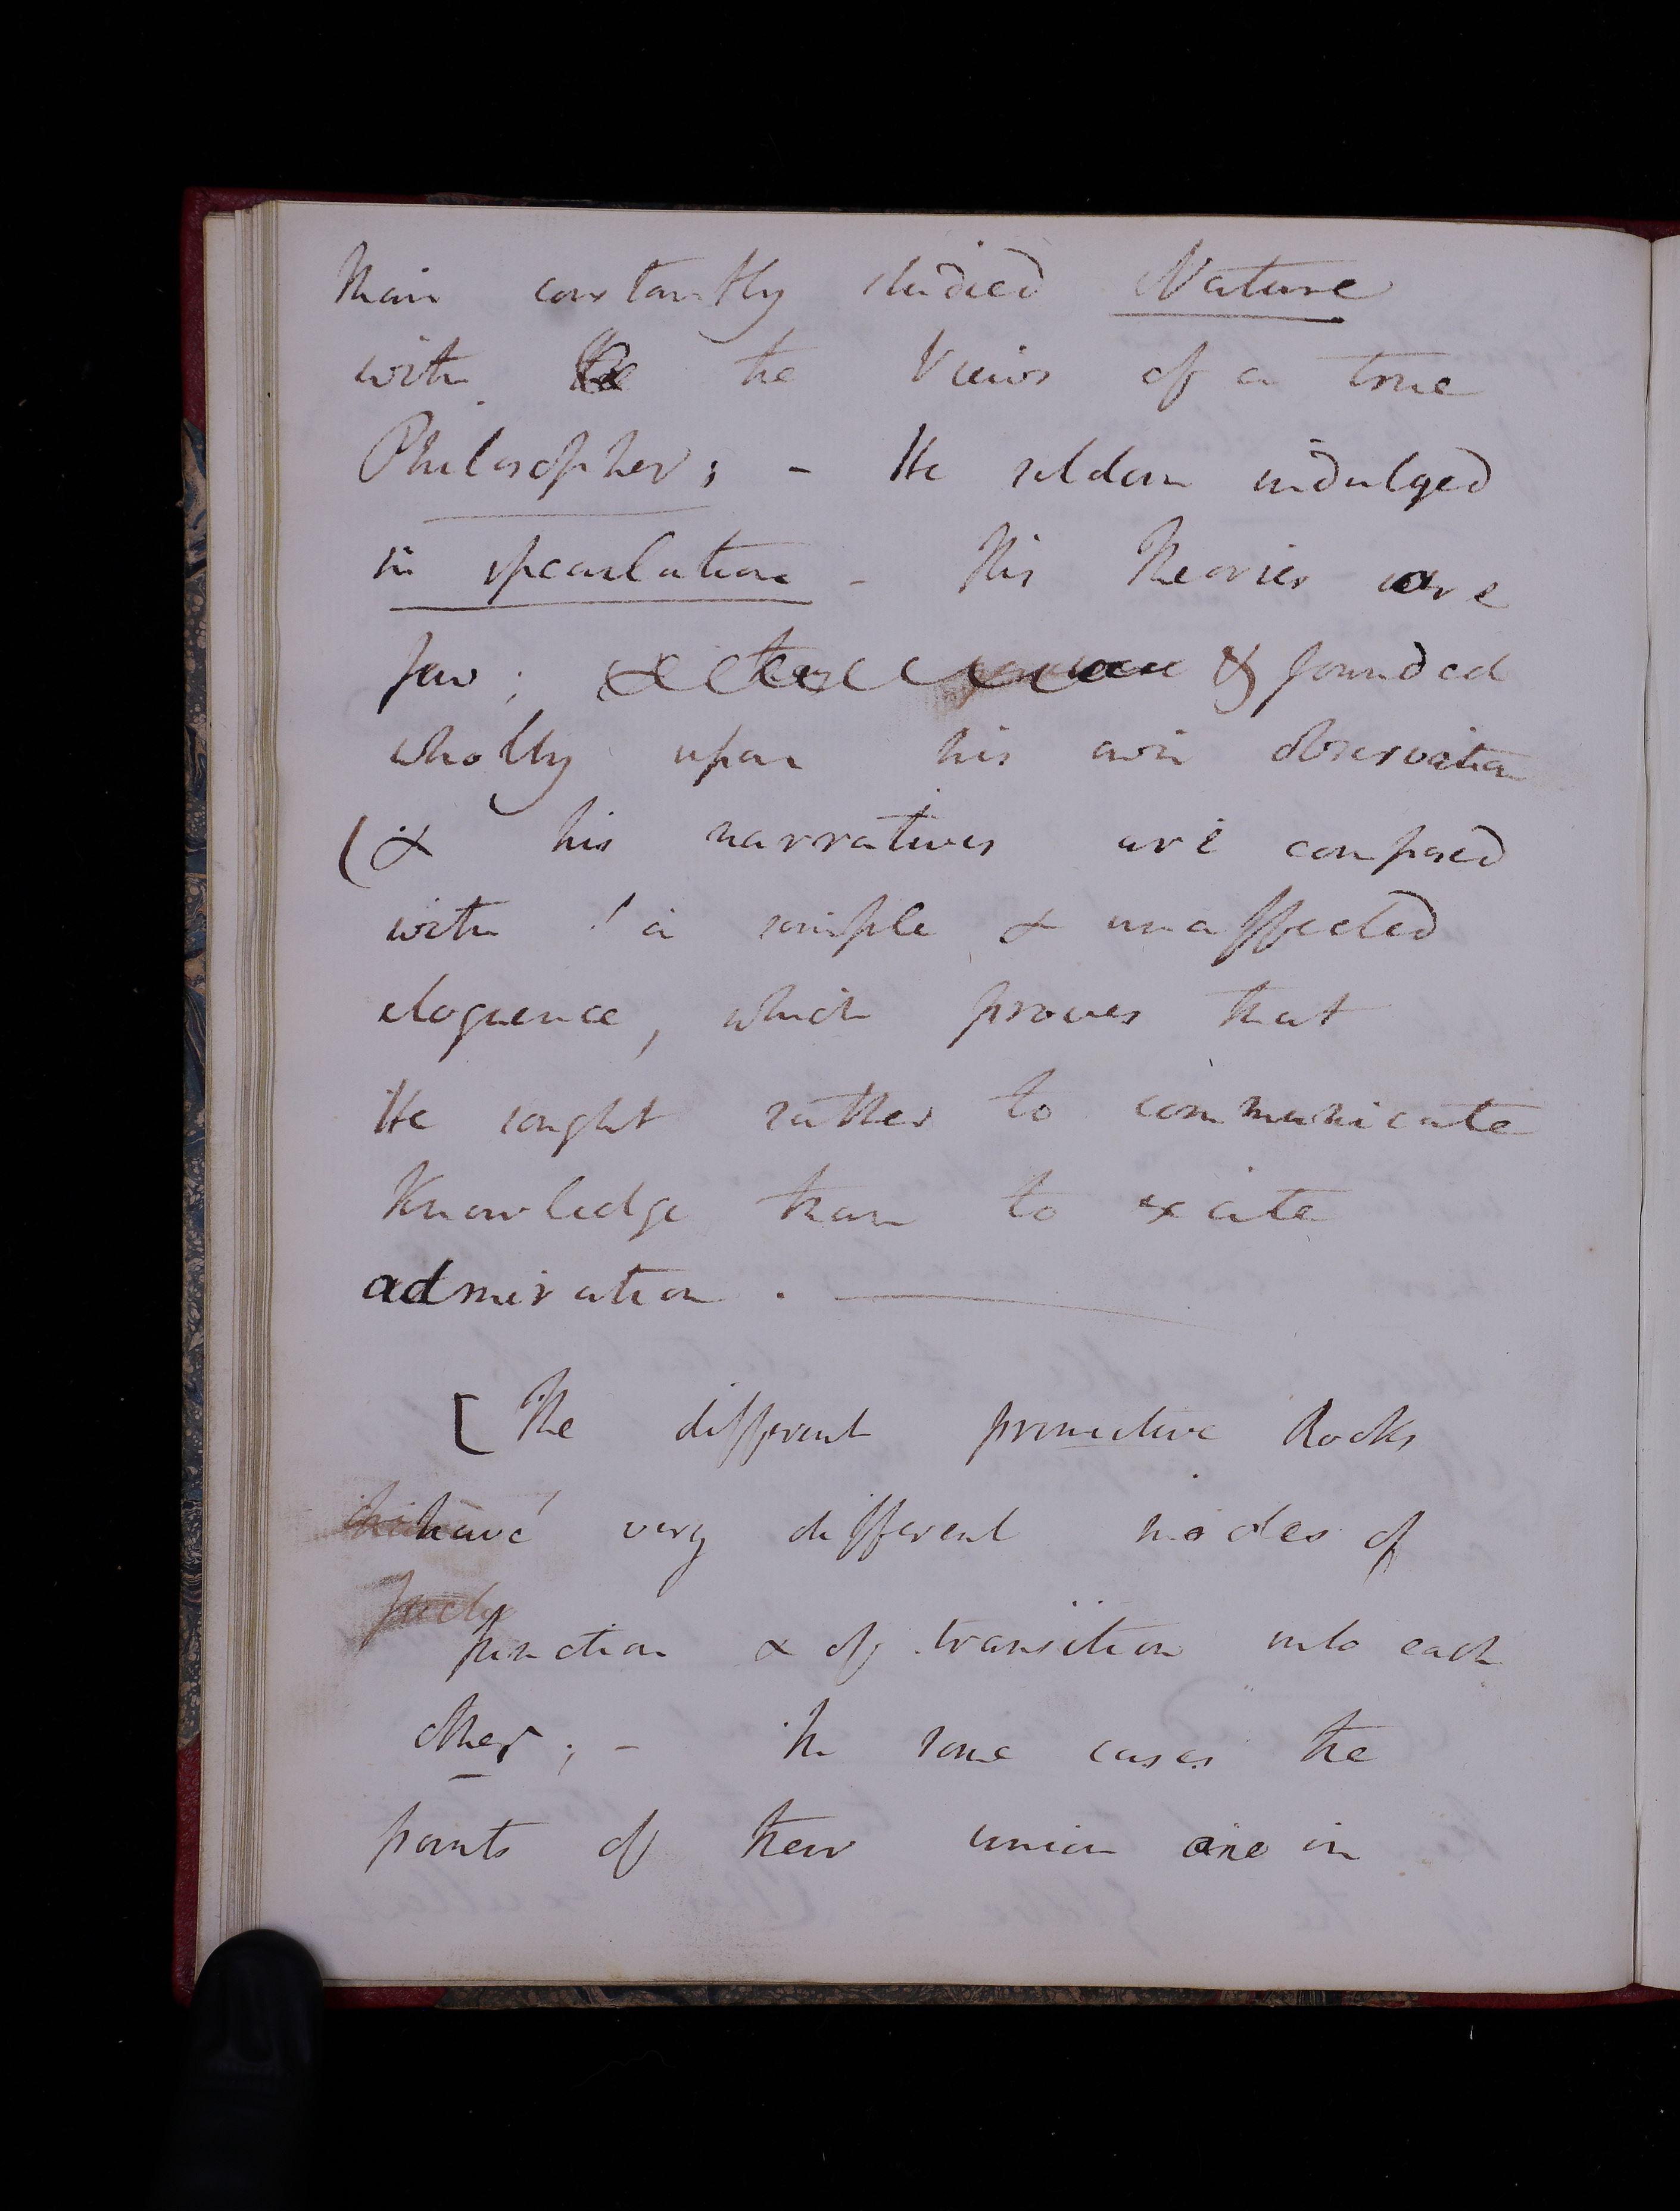 Man constantly studied Nature
with the Views of a true
Philosopher; - He seldom indulged
in speculation - His Theories are
few; & founded
wholly upon his own observation
(& his narratives are composed
with a simple & unaffected
eloquence, which proves that
He sought rather to communicate
Knowledge than to excite
admiration.
[The different primitive Rocks
have very different modes of
junction & of transition into each
other; - In some cases the
points of their union are in